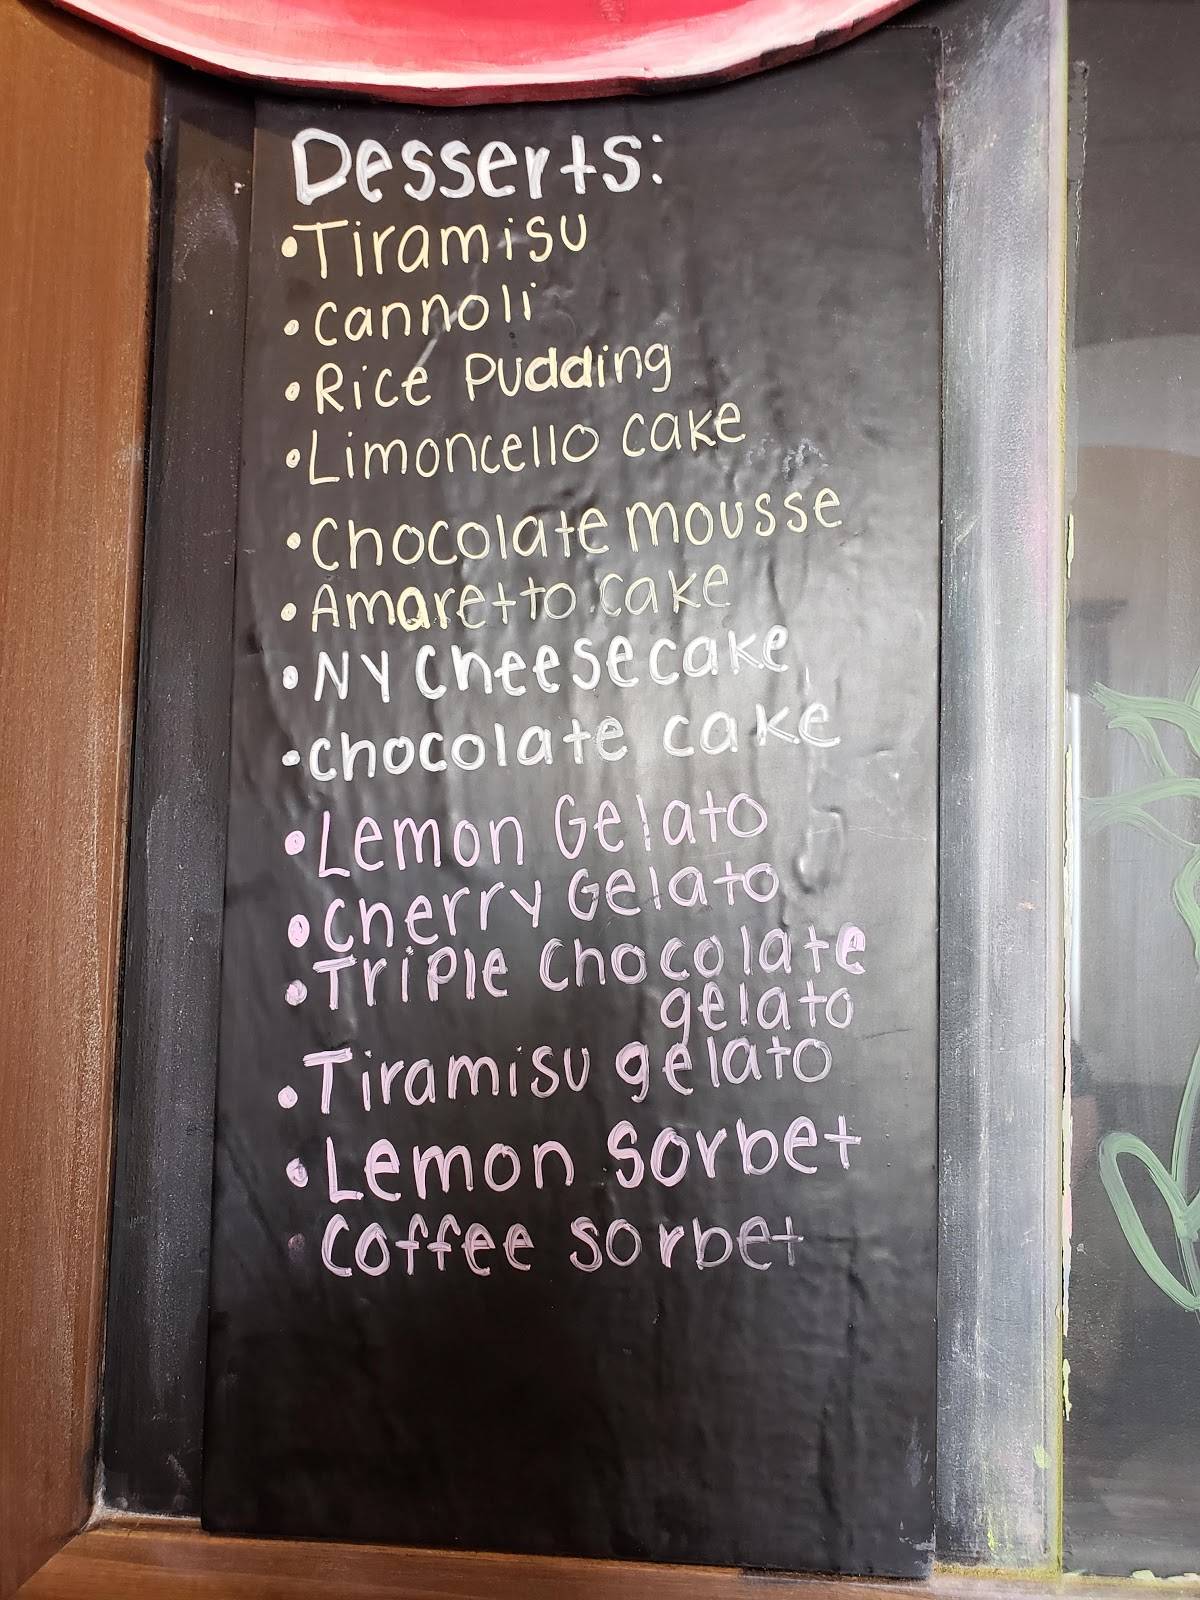 Desserts:
•Tiramisu
•Cannoli
•Rice Pudding
•Limoncello cake
•Chocolate mousse
•Amaretto cake
•NY Cheesecake
•chocolate cake
•Lemon Gelato
•Cherry Gelato
•Triple Chocolate
gelato
•Tiramisu gelato
•Lemon Sorbet
•Coffee Sorbet